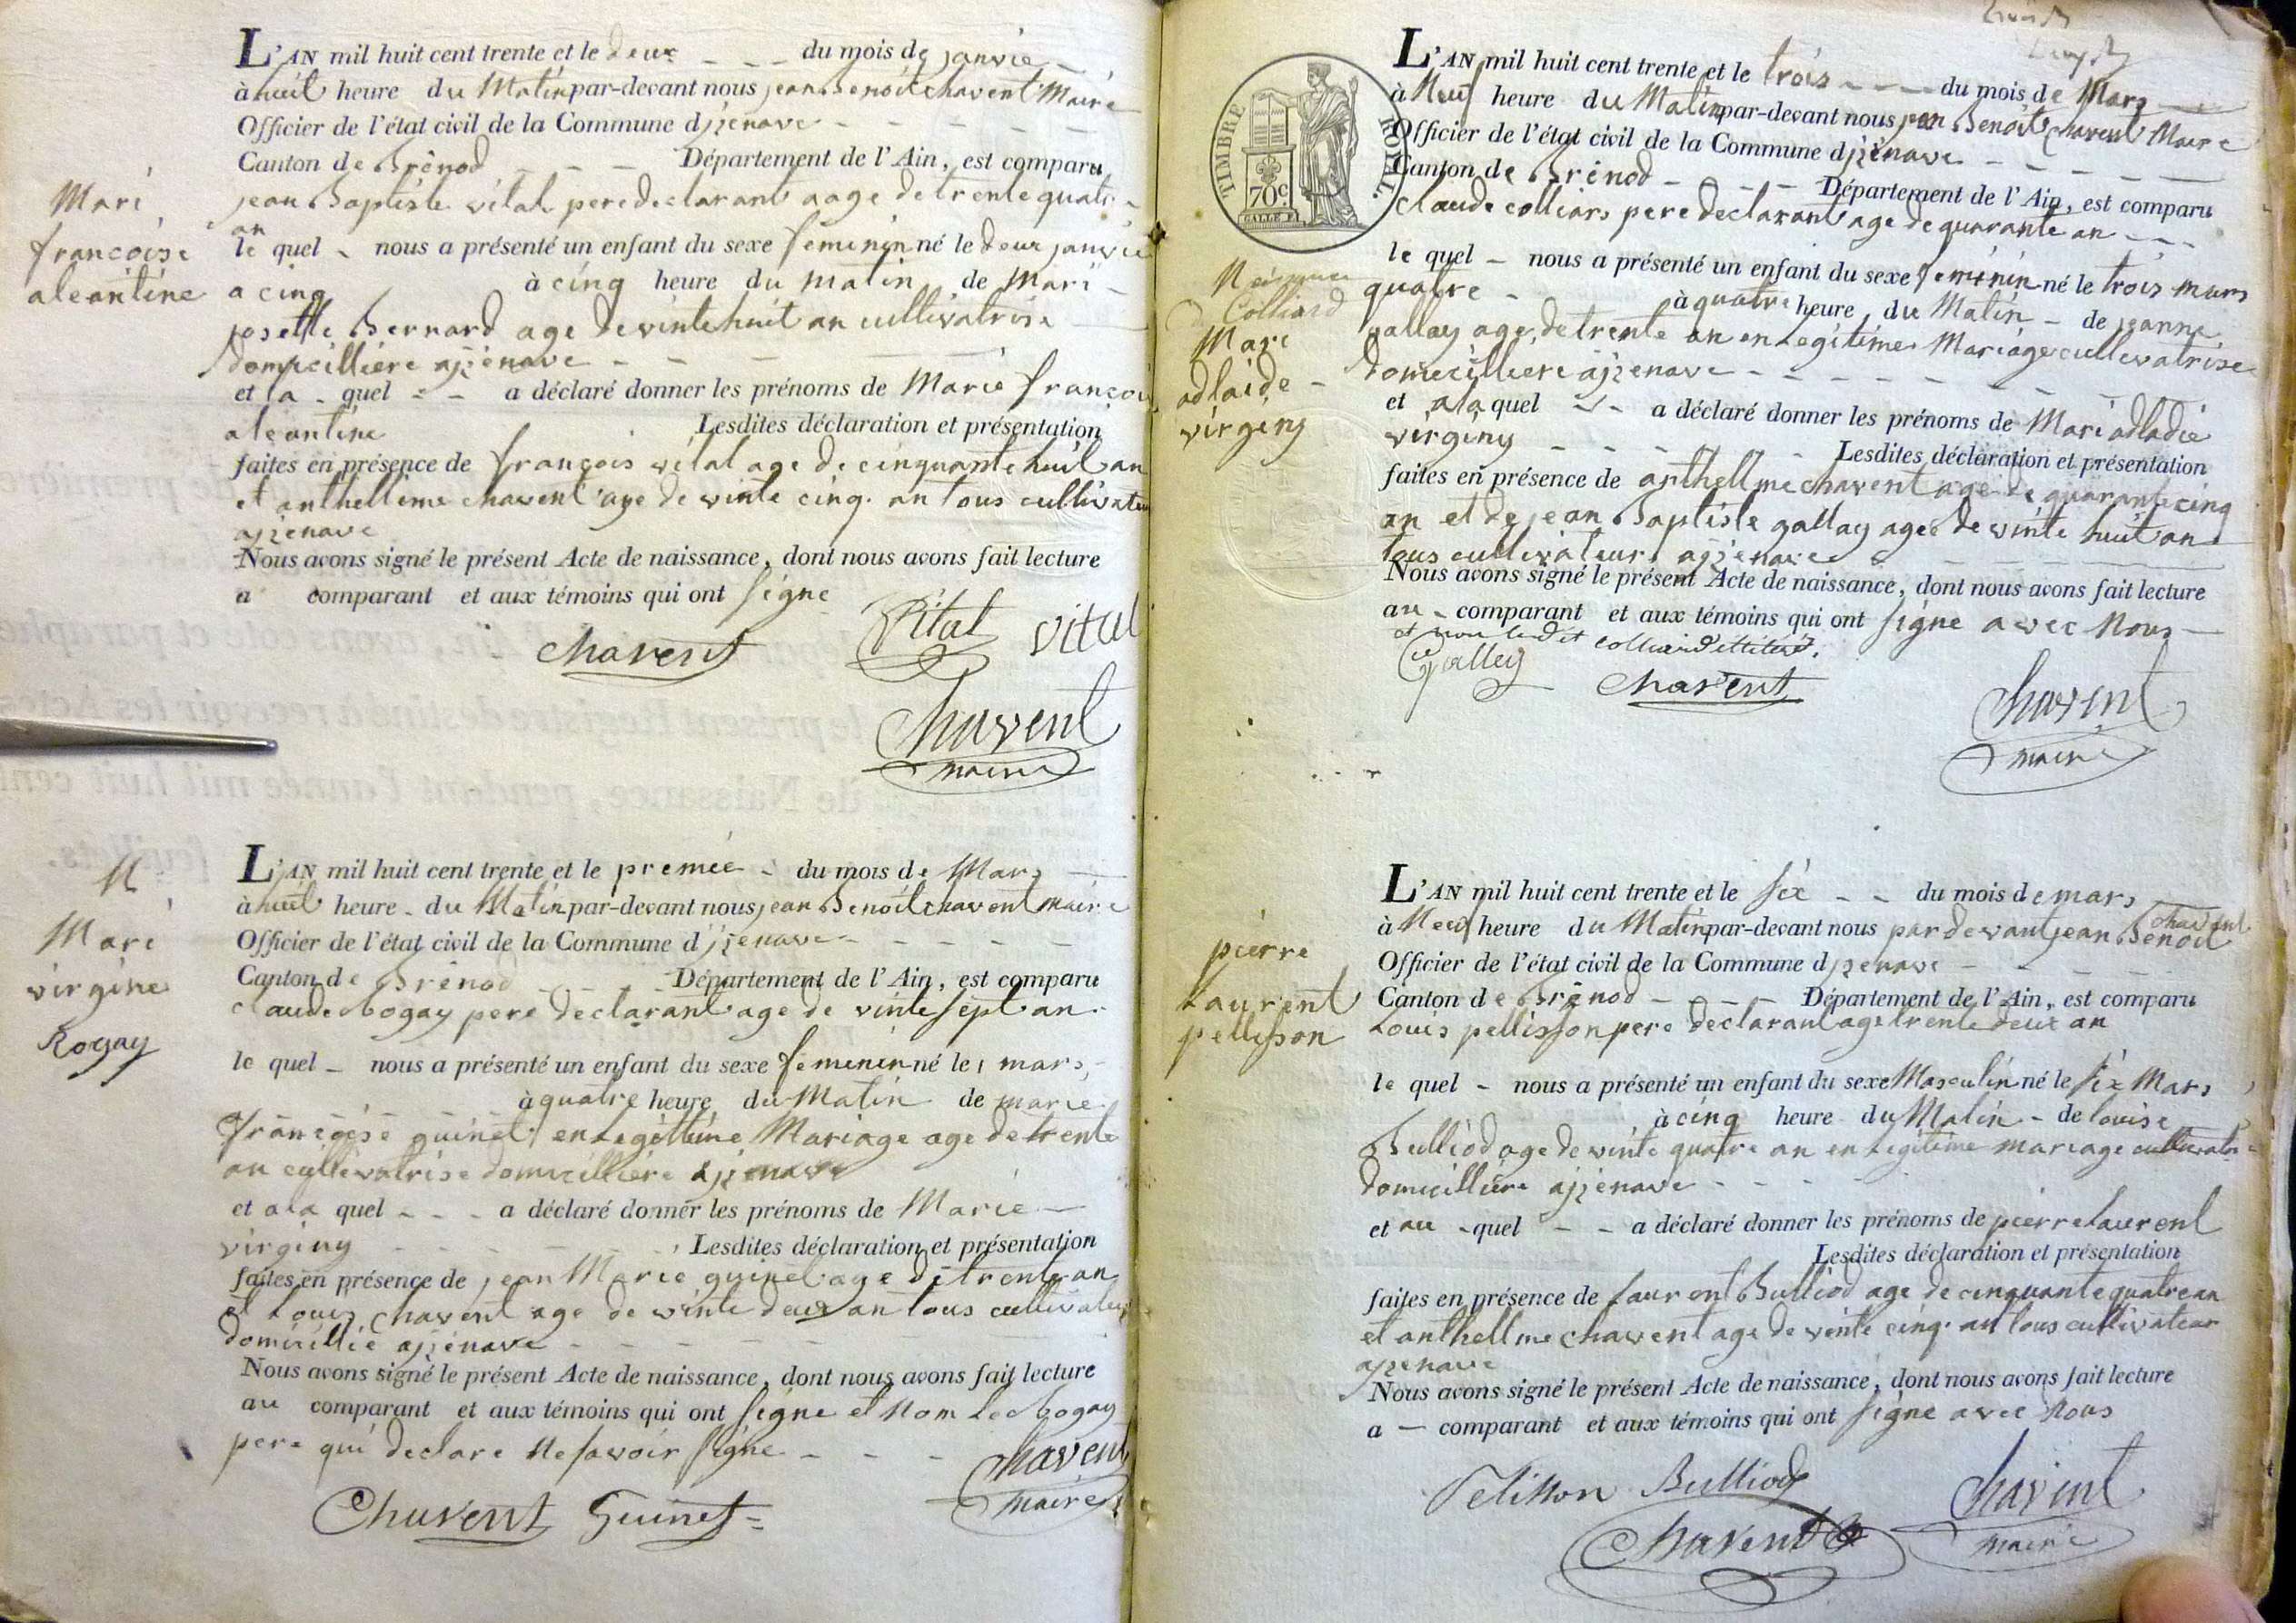 L'AN mil huit cent trente et le deux du mois de janvie
à huit heure du Matin par-devant nous jean Benoit chavent Maire
Officier de l'état civil de la Commune djzenave
Canton de Brénod Département de l'Ain, est comparu
jean Baptiste vital pere declarant aage de trente quatre
an
le quel nous a présenté un enfant du sexe feminin né le deux janvie
a cinq à cinq heure du matin de Mari
josette Bernard age de vinte huit an cultivatrise
domicilliere ajzenave
et la quel a déclaré donner les prénoms de Marie françoi
aleantine Lesdites déclaration et présentation
faites en présence de françois vital age de cinquante huit an
et anthellime chavent age de vinte cinq an tous cultivateu
ajzenave
Nous avons signé le présent Acte de naissance, dont nous avons fait lecture
a comparant et aux témoins qui ont signe
Vital vital
chavent
Chavent
maire
Mari
francoise
aleantine
L'AN mil huit cent trente et le premée du mois de Mars
à huit heure du Matin par-devant nous jean Benoit chavent maire
Officier de l'état civil de la Commune d'jzenave
Canton de Brénod Département de l'Ain, est comparu
claude bogay pere declarant age de vinte sept an
le quel nous a présenté un enfant du sexe femenin né le 1 mars
à quatre heure du Matin de marie
guinet en Legétime Mariage age de trente
an cultivatrise domicilliere ajzenave
et ala quel a déclaré donner les prénoms de Marie
virginy Lesdites déclaration et présentation
faites en présence de jean Marie guinet age de trente an
et Louis chavent age de vinte deux an tous cultivateur
domicillié ajzenave
Nous avons signé le présent Acte de naissance, dont nous avons fait lecture
au comparant et aux témoins qui ont signe et Nom Led bogay
pere qui declare Ne savoir signe
Chavent
maire
Chavent Guinet
N
Mari
virgine
Rogay
L'AN mil huit cent trente et le trois du mois de Mars
à Neuf heure du Matin par-devant nous jean Benoit chavent Maire
Officier de l'état civil de la Commune djzenave
Canton de Brénod Département de l'Ain, est comparu
claude colliard pere declarant age de quarante an
le quel nous a présenté un enfant du sexe feminin né le trois mars
quatre à quatre heure du Matin de jeanne
gallay age de trente an en Legitime Mariage cultevatrise
domicilliere ajzenave
et ala quel a déclaré donner les prénoms de Mari adladie
virginy Lesdites déclaration et présentation
faites en présence de anthellme chavent age de quarante cinq
an et de jean Baptiste gallay agee de vinte huit an
tous cultivateurs ajzenave
Nous avons signé le présent Acte de naissance, dont nous avons fait lecture
au comparant et aux témoins qui ont signe avec Nous
et non ledit colliard
Galley
chavent
Chavent
maire
TIMBRE ROYAL
70c.
Colliard
Mari
adlaide
virginy
L'AN mil huit cent trente et le six du mois de mars
à Neuf heure du Matin par-devant nous par devant jean Benoit chavent
Officier de l'état civil de la Commune djzenave
Canton de Brénod Département de l'Ain, est comparu
Louis pellisson pere declarant age trente deux an
le quel nous a présenté un enfant du sexe Masculin né le six Mars
à cinq heure du Matin de louise
Bulliod age de vinte quatre an en Legitime mariage cultivatri
domicilliere ajzenave
et au quel a déclaré donner les prénoms de pierre laurent
Lesdites déclaration et présentation
faites en présence de Laurent Bulliod age de cinquante quatre an
et anthellme chavent age de vinte cinq an tous cultivateur
ajzenave
Nous avons signé le présent Acte de naissance, dont nous avons fait lecture
a comparant et aux témoins qui ont signe avec Nous
Pelisson Bulliod
Chavent
Chavent
maire
pierre
Laurent
pellisson